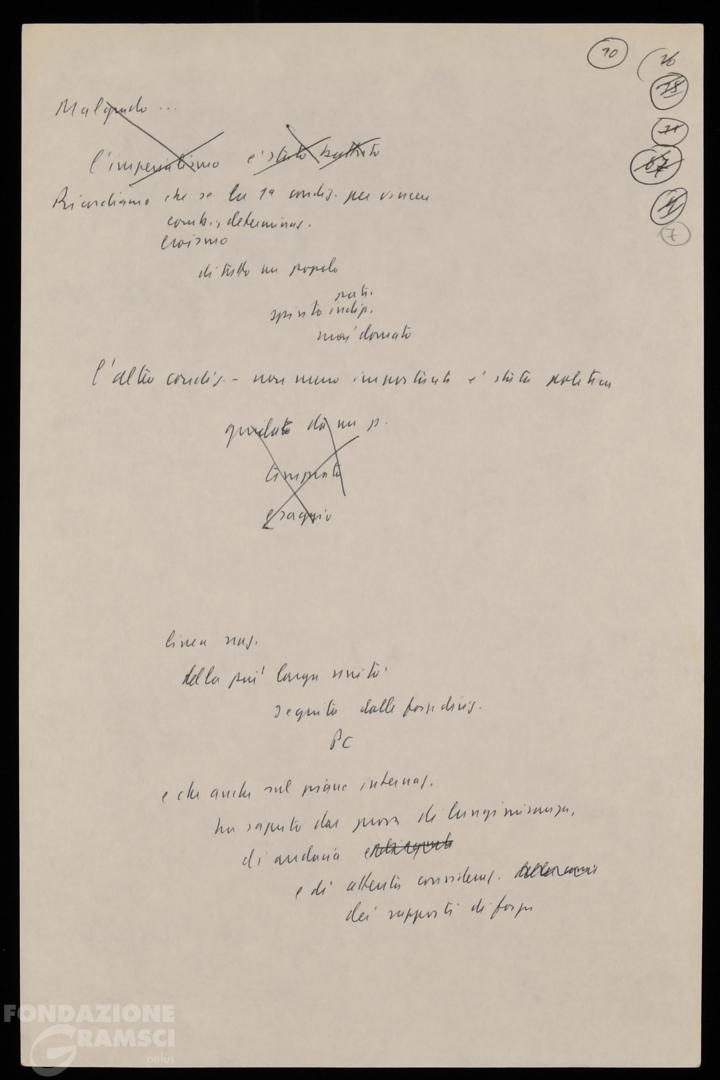 10
26
28
71
67
41
7
Malgrado ...
l'imperialismo è stato battuto
Ricordiamo che se la 1ª condiz. per vincere
comb., determinaz.
eroismo
di tutto un popolo
patr.
spirito indip.
mai domato
l'altra condiz. - non meno importante è stata politica
guidato da un p.
temprato
e saggio
linea naz.
della più larga unità
seguita dalle forze dirig.
PC
e che anche sul piano internaz.
ha saputo dar prova di lungimiranza,
di audacia
e di attenta consideraz.
dei rapporti di forza
FONDAZIONE
GRAMSCI
onlus